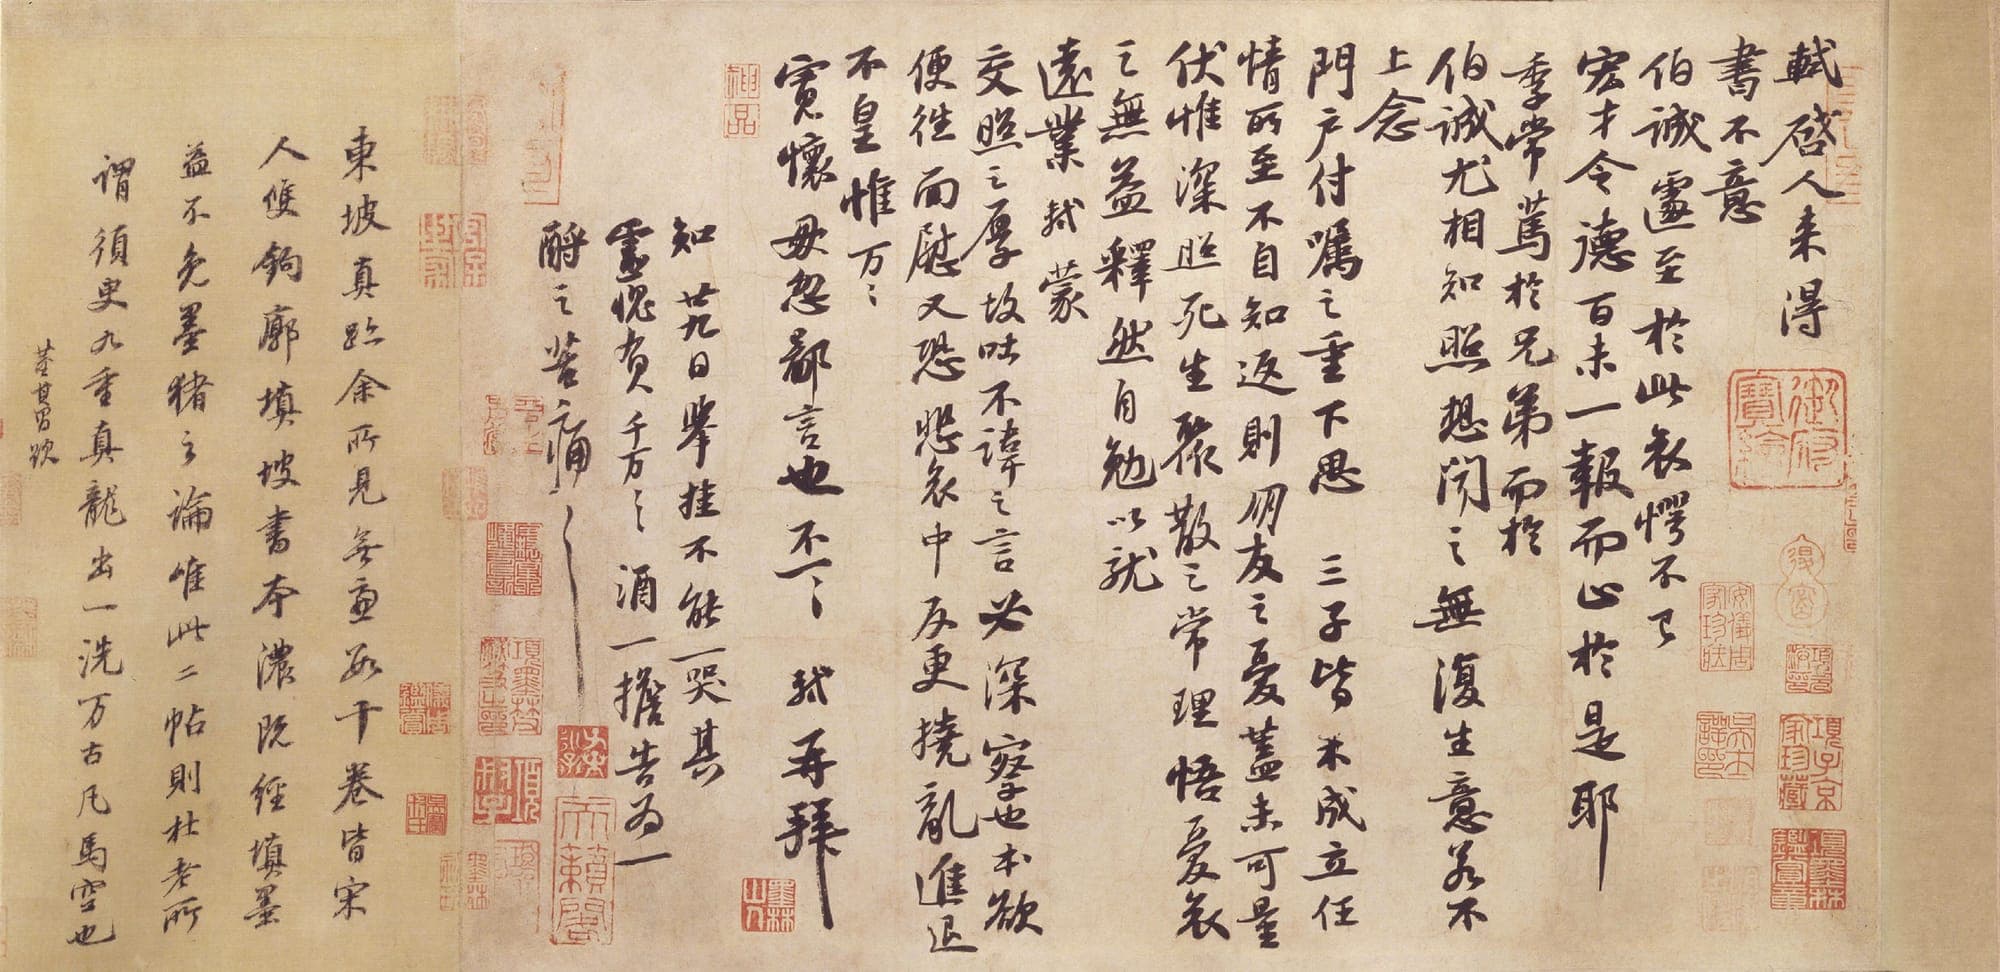 軾啓人来得
書不意
伯誠遽至於此哀愕不已
宏才令德百未一報而止於是耶
季常篤於兄弟而於
伯誠尤相知照想聞之無復生意若不
上念
門户付囑之重下思三子皆未成立任
情所至不自知返則朋友之憂蓋未可量
伏惟深照死生聚散之常理悟憂哀
之無益釋然自勉以就
遠業軾蒙
交照之厚故吐不諱之言必深察也本欲
便往面慰又恐悲哀中反更撓亂進退
不皇惟万〻
寬懷毋忽鄙言也不一〻軾再拜
知廿九日舉挂不能一哭其
靈愧負千万〻酒一擔告為一
酹之苦痛〻〻
東坡真跡余所見無慮數十卷皆宋
人雙鉤廓填坡書本濃既經填墨
益不免墨猪之論唯此二帖則杜老所
謂須臾九重真龍出一洗万古凡馬空也
董其昌跋
神品
御府寶繪
項子京家珍藏
項墨林鑑賞章
天籟閣
墨林山人
安儀周家珍藏
項墨林父秘笈之印